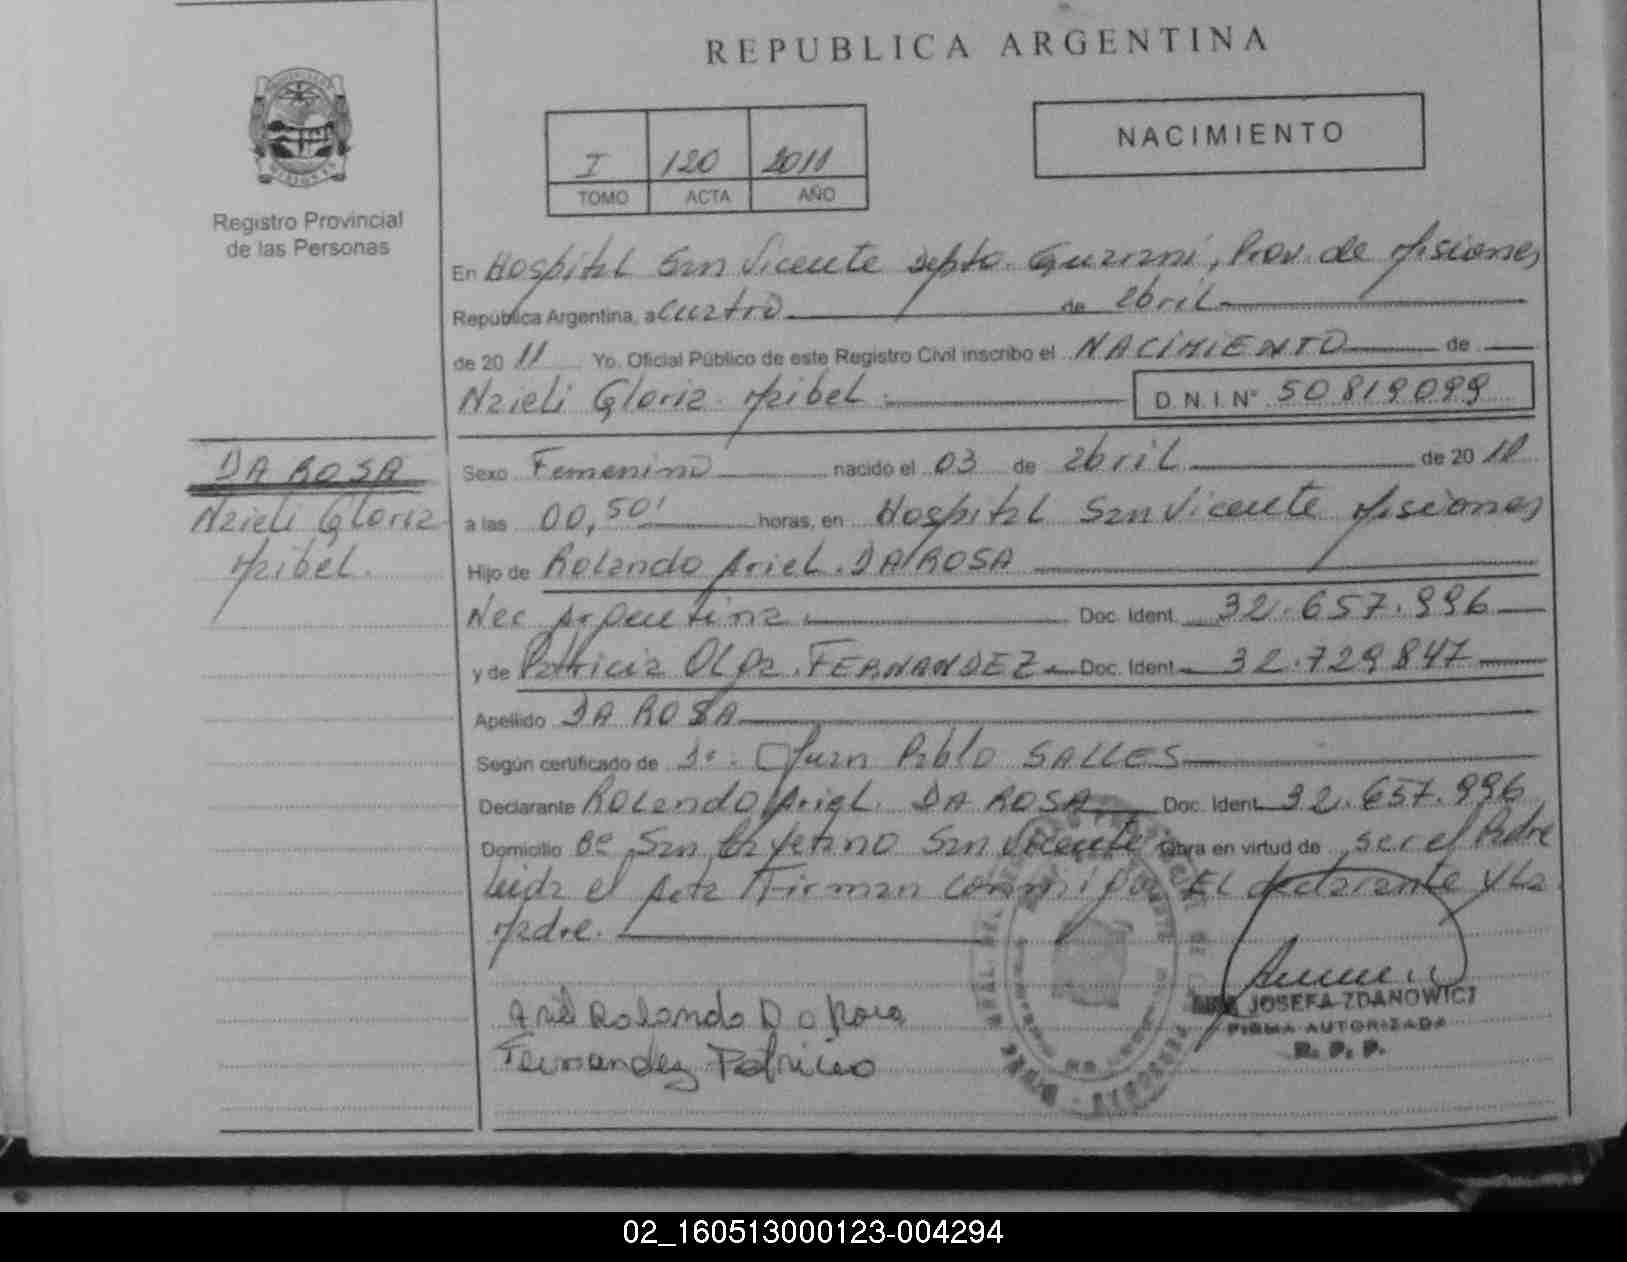 REPUBLICA ARGENTINA
NACIMIENTO
I 120 2011
TOMO ACTA AÑO
Registro Provincial
de las Personas
En Hospital San Vicente Depto. Guarani, Prov. de Misiones
República Argentina, a cuatro de abril
de 2011 Yo. Oficial Público de este Registro Civil inscribo el NACIMIENTO de
Naieli Gloria Maribel D.N.I. Nº 50819099
DA ROSA
Naieli Gloria
Maribel.
Sexo Femenino nacido el 03 de abril de 2011
a las 00,50' horas, en Hospital San Vicente Misiones
Hijo de Rolando Ariel DA ROSA
Nac Argentina Doc. Ident. 32.657.996
y de Patricia Olga FERNANDEZ Doc. Ident. 32.729.847
Apellido DA ROSA
Según certificado de Dr. Juan Pablo SALLES
Declarante Rolando Ariel DA ROSA Doc. Ident. 32.657.996
Domicilio Bº San Cayetano San Vicente Obra en virtud de ser el Padre
Leida el Acta Firman conmigo El declarante y La
Madre.
Ariel Rolando Da Rosa
Fernandez Patricia
JOSEFA ZDANOWICZ
FIRMA AUTORIZADA
R. P. P.
02_160513000123-004294